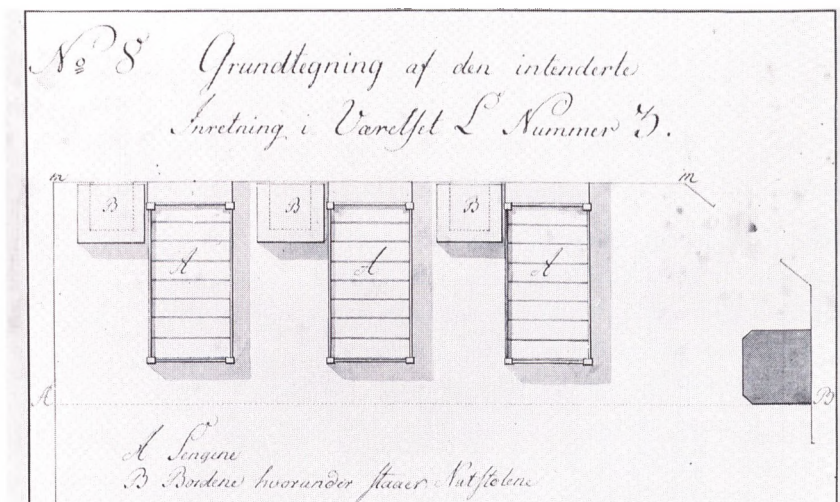 No 8 Grundtegning af den intenderte
Inretning i Værelset L Nummer 3.
m m
B B B
A A A
A B
A Sengene
B Bordene hvorunder staaer Natstolene